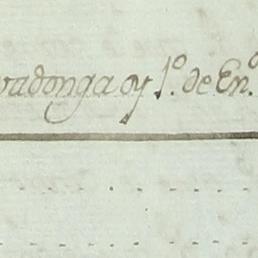 vadonga oy 1º. de Enº.